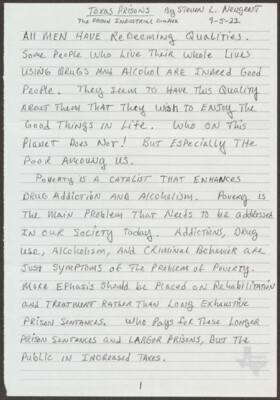 TEXAS PRISONS By Steven L. Neugent
THE PRISON INDUSTRIAL COMPLEX 9-5-22
All MEN HAVE Redeeming Qualities.
Some People Who Live Their Whole Lives
USING DRUGS AND Alcohol ARE INdeed Good
People. They Seem to Have This Quality
About Them That They Wish To Enjoy The
Good Things in Life. Who ON This
Planet Does Not! But Especially THe
Poor Amoung Us.
Poverty is A CATALIST THAT ENHANCES
DRUG Addiction AND Alcoholism. Poverty is
The MAIN Problem That Needs to be addressed
IN OUR Society Today. Addictions, Drug
Use, Alcoholism, And Criminal Behavior are
Just Symptoms of The Problem of Poverty.
More Ephasis Should be Placed on Rehabilitation
and Treatment RATHER THAN Long Exhaustive
PRISON SENTANCES. Who Pays for These Longer
PRISON SENTANCES and LARGER PRISONS, But The
Public in Increased Taxes.
1